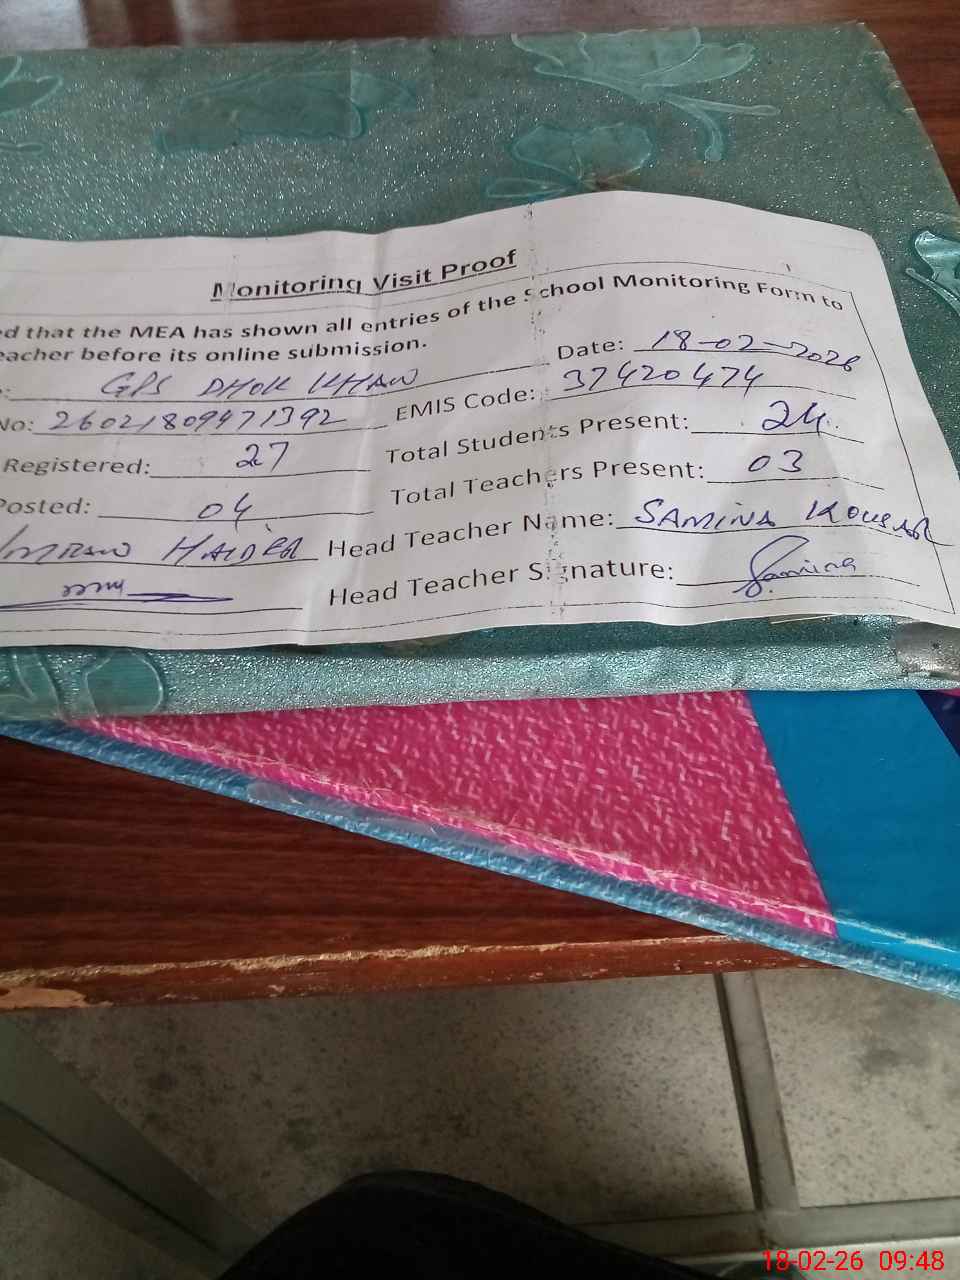 Monitoring Visit Proof
ed that the MEA has shown all entries of the School Monitoring Form to
eacher before its online submission.
Date: 18-02-2026
GPS DHOK KHAN
No: 26021809471392 EMIS Code: 37420474
Registered: 27 Total Students Present: 24
Posted: 04 Total Teachers Present: 03
IMRAN HAIDER Head Teacher Name: SAMINA KOUSAR
Head Teacher Signature: Samina
18-02-26 09:48